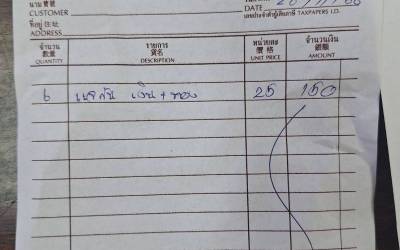 นามลูกค้า 寶號
CUSTOMER
DATE
ที่อยู่ 住址
ADDRESS
เลขประจำตัวผู้เสียภาษี TAXPAPERS I.D.
จำนวน รายการ หน่วยละ จำนวนเงิน
數量 貨名 價格 銀額
QUANTITY DESCRIPTION UNIT PRICE AMOUNT
6 เงิน + ทอง 25 150